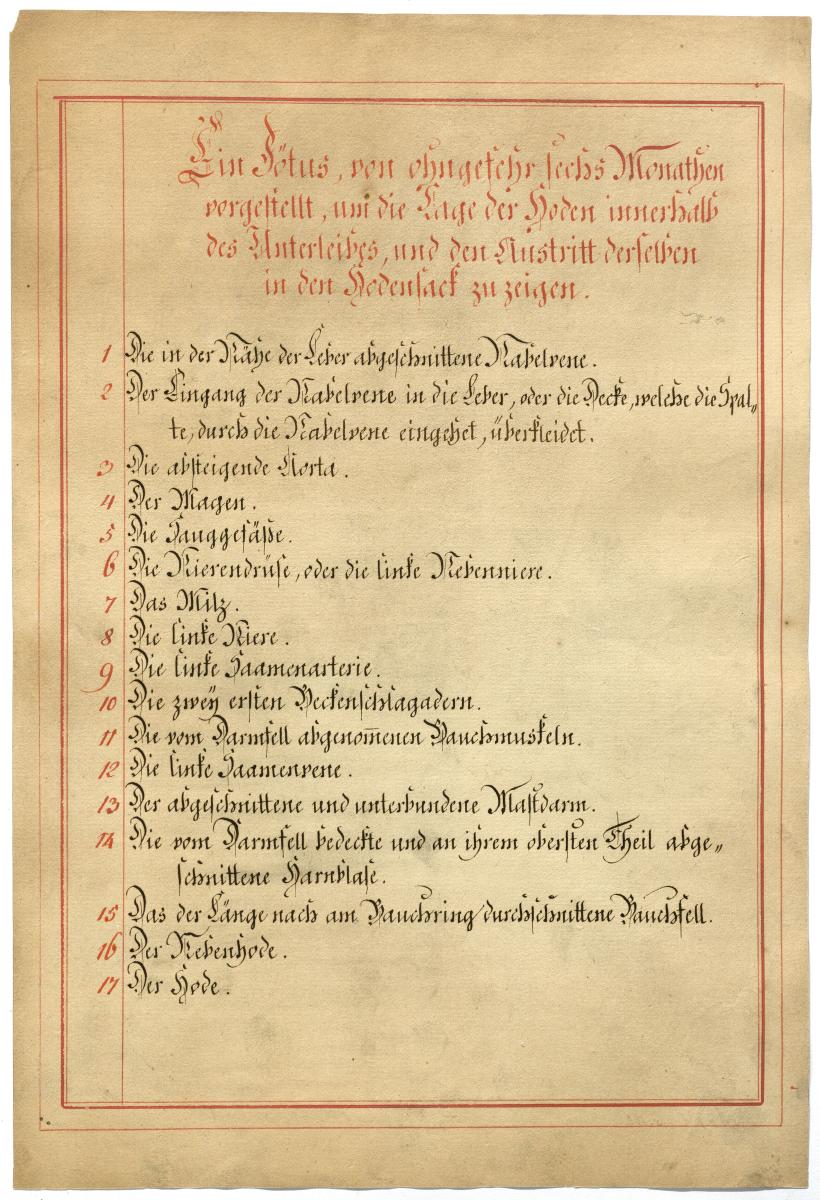 Ein Fötus, von ohngefehr sechs Monathen
vorgestellt, um die Lage der Hoden innerhalb
des Unterleibes, und den Austritt derselben
in den Hodensack zu zeigen.
1 Die in der Nähe der Leber abgeschnittene Nabelvene.
2 Der Eingang der Nabelvene in die Leber, oder die Decke, welche die Spal„
te, durch die Nabelvene eingehet, überkleidet.
3 Die absteigende Aorta.
4 Der Magen.
5 Die Sauggefäße.
6 Die Nierendrüse, oder die linke Nebenniere.
7 Das Milz.
8 Die linke Niere.
9 Die linke Saamenarterie.
10 Die zweÿ ersten Beckenschlagadern.
11 Die vom Darmfell abgenom̅enen Bauchmuskeln.
12 Die linke Saamenvene.
13 Der abgeschnittene und unterbundene Mastdarm.
14 Die vom Darmfell bedeckte und an ihrem obersten Theil abge„
schnittene Harnblase.
15 Das der Länge nach am Bauchring durchschnittene Bauchfell.
16 Der Nebenhode.
17 Der Hode.